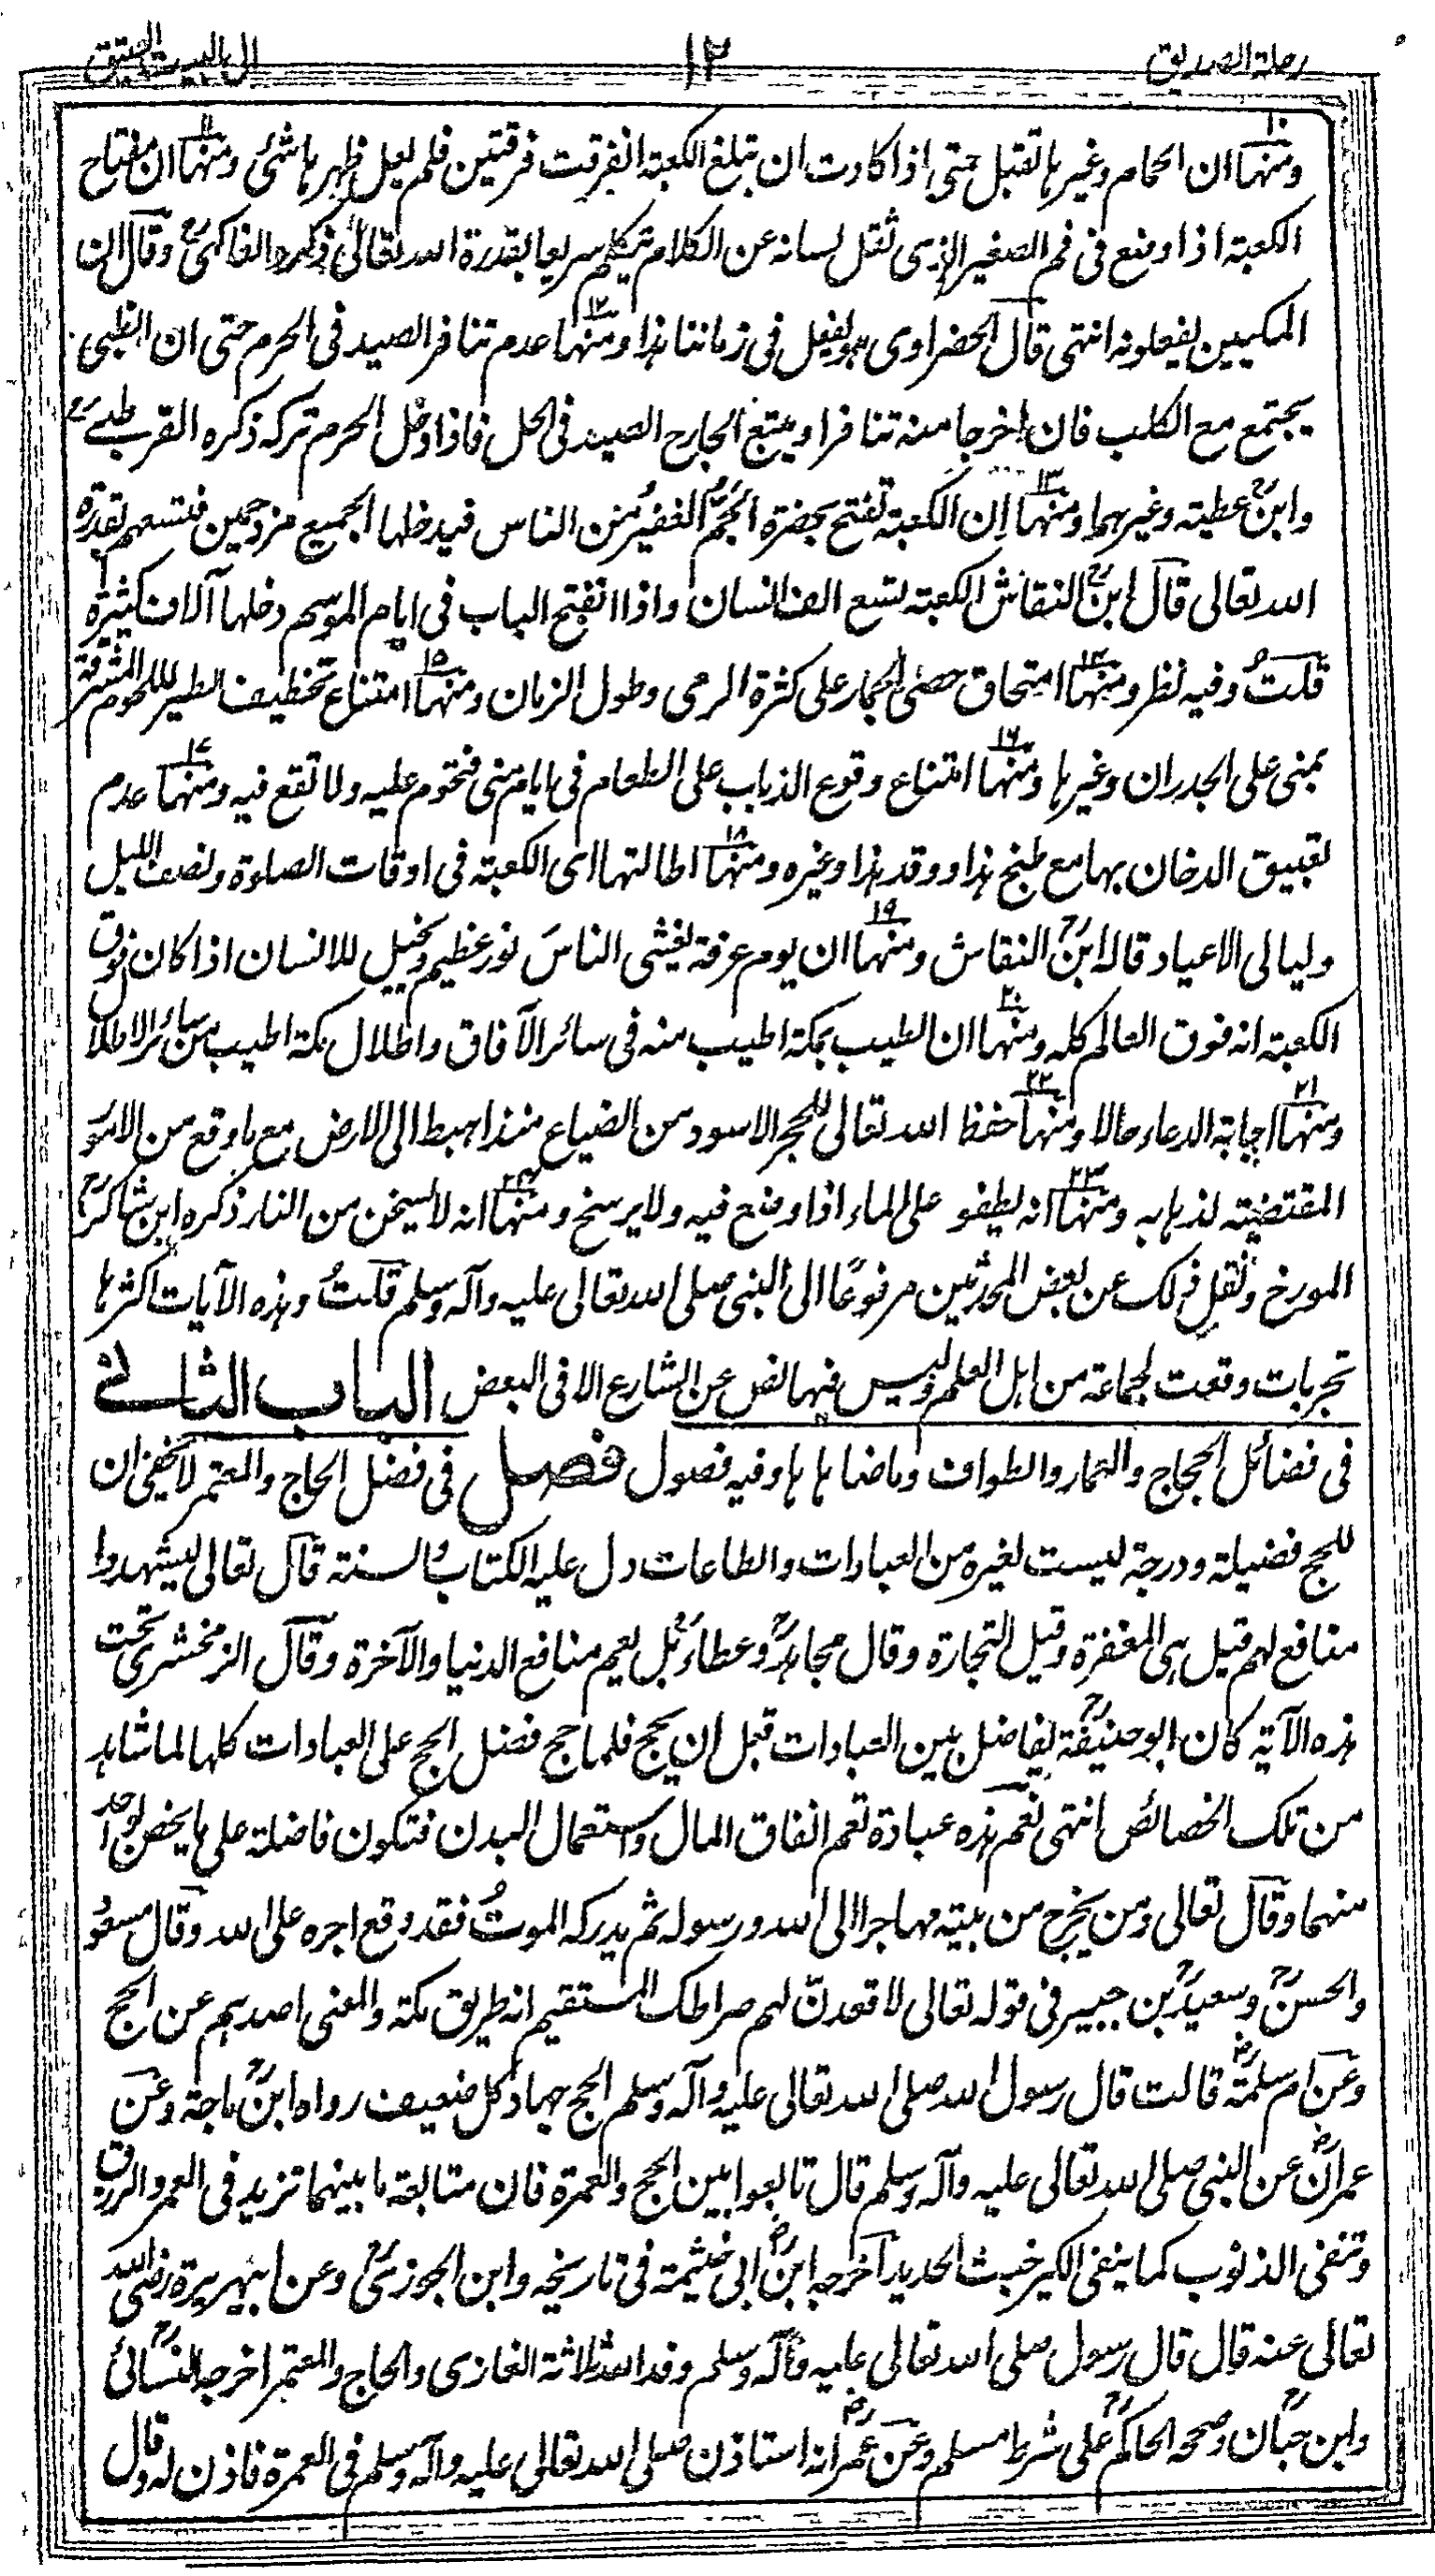 رحلة الصديق
١٢
الى البيت العتيق
ومنها١٠ ان الحمام وغيرها تقبل حتى اذا كادت ان تبلغ الكعبة انفرقت فرقتين فلم يعل ظهرها شئ ومنها١١ ان مفتاح
الكعبة اذا وضع فى فم الصغير الذى ثقل لسانه عن الكلام تيكلم سريعا بقدرة الله تعالى ذكره الفاكهىؒ وقال ان
المكيين يفعلونه انتهى قال الحضراوى هو يفعل فى زماننا هذا ومنها١٢ عدم تنافر الصيد فى الحرم حتى ان الظبى
يجتمع مع الكلب فان اخرجا منه تنافرا ويتبع الجارح الصيد فى الحل فاذا دخل الحرم تركه ذكره القرطبےؒ
وابنؒ عطية وغيرهما ومنها١٣ ان الكعبة تفتح بحضرة الجمّ الغفير من الناس فيدخلها الجميع مزدحمين فتسعهم بقدرة
الله تعالى قال ابنؒ النقاش الكعبة تسع الف انسان واذا انفتح الباب فى ايام الموسم دخلها آلاف كثيرة
قلتُ وفيه نظر ومنها١٤ امتحاق حصى الجمار على كثرة الرمى وطول الزمان ومنها١٥ امتناع تخطيف الطير للحوم المشرقة
بمنى على الجدران وغيرها ومنها١٦ امتناع وقوع الذباب على الطعام فى ايام منى فتحوم عليه ولا تقع فيه ومنها١٧ عدم
تعبيق الدخان بها مع طبخ هذا ووقد هذا وغيره ومنها١٨ اطالتها اى الكعبة فى اوقات الصلوة ونصف الليل
وليالى الاعياد قاله ابنؒ النقاش ومنها١٩ ان يوم عرفة يغشى الناسَ نور عظيم ويخيل للانسان اذا كان فوق
الكعبة انه فوق العالم كله ومنها٢٠ ان الطيب بمكة اطيب منه فى سائر الآفاق واطلال مكة اطيب من سائر الاطلال
ومنها٢١ اجابة الدعاء حالا ومنها٢٢ حفظ الله تعالى للحجر الاسود من الضياع منذ اهبط الى الارض مع ما وقع من الامور
المقتضية لذهابه ومنها٢٣ انه يطفو على الماء اذا وضع فيه ولا يرسخ ومنها٢٤ انه لا يسخن من النار ذكره ابن شاكرؒ
المورخ ونقل ذلك عن بعض المحدثين مرفوعًا الى النبى صلى الله تعالى عليه وآله وسلم قلتُ وهذه الآيات اكثرها
تجربات وقعت لجماعة من اهل العلم وليس فيها نص عن الشارع الا فى البعض الباب الثانے
فى فضائل الحجاج والعمار والطواف وما ضاهاها وفيه فصول فصل فى فضل الحاج والمعتمر لا يخفى ان
للحج فضيلة ودرجة ليست لغيره من العبادات والطاعات دل عليه الكتاب والسنة قال تعالى ليشهدوا
منافع لهم قيل هى المغفرة وقيل التجارة وقال مجاهدؒ وعطاءؒ بل يعم منافع الدنيا والآخرة وقال الزمخشرى تحت
هذه الآية كان ابو حنيفةؒ يفاضل بين العبادات قبل ان يحج فلما حج فضل الحج على العبادات كلها لما شاهد
من تلك الخصائص انتهى نعم هذه عبادة تعم انفاق المال واستعمال البدن فتكون فاضلة على ما يخص لواحد
منهما وقال تعالى ومن يخرج من بيته مهاجرا الى الله ورسوله ثم يدركه الموتُ فقد وقع اجره على الله وقال مسعود
والحسنؒ وسعيدؒ بن جبير فى قوله تعالى لاقعدنّ لهم صراطك المستقيم انه طريق مكة والمعنى اصدهم عن الحج
وعن ام سلمةؓ قالت قال رسول الله صلى الله تعالى عليه وآله وسلم الحج جهاد كل ضعيف رواه ابنؒ ماجة وعن
عمرانؓ عن النبى صلى الله تعالى عليه وآله وسلم قال تابعوا بين الحج والعمرة فان متابعة ما بينهما تزيد فى العمر والرزق
وتنفى الذنوب كما ينفى الكير خبث الحديد اخرجه ابنؒ ابى خيثمة فى تاريخه وابن الجوزىؒ وعن ابيهريرة رضى الله
تعالى عنه قال قال رسول صلى الله تعالى عليه وآله وسلم وفد الله ثلاثة الغازى والحاج والمعتمر اخرجه النسائىؒ
وابن حبانؒ وصححه الحاكمؒ على شرط مسلم وعن عمرؓ انه استاذن صلى الله تعالى عليه وآله وسلم فى العمرة فاذن له وقال